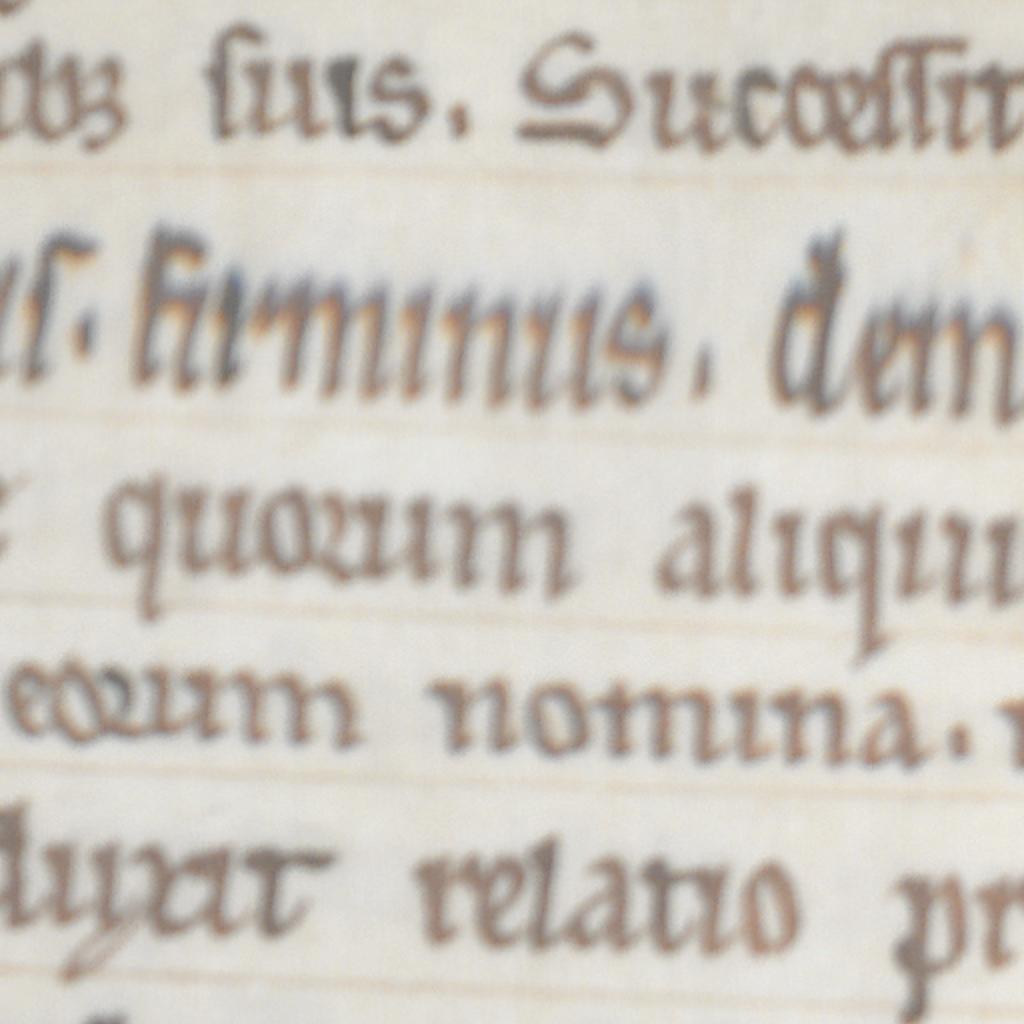 ſuis. Succeſſit
firminus. dein
quorum aliqui
eorum nomina.
duxit relatio